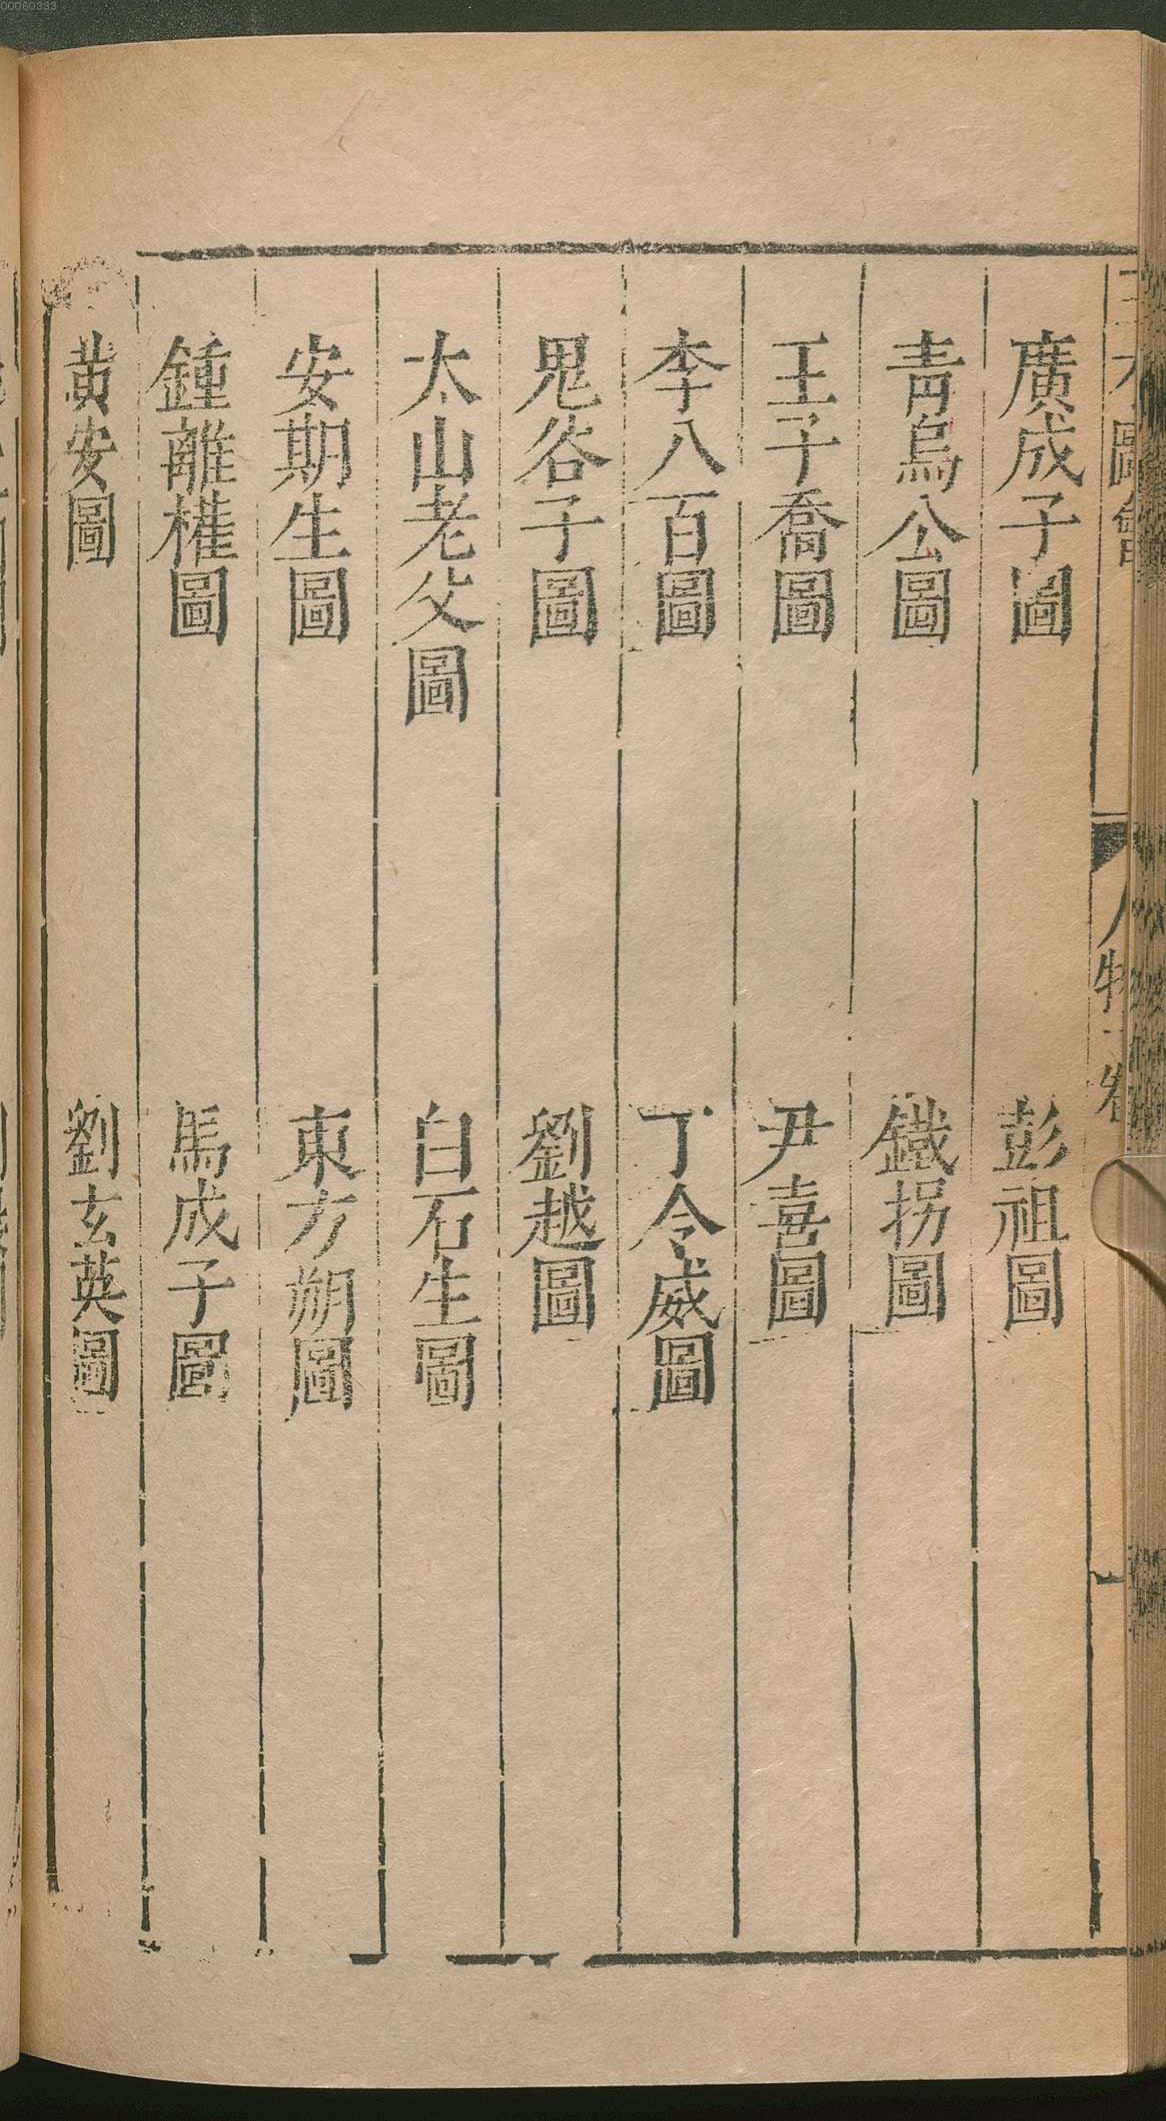 00060333
廣成子圖 彭祖圖
青烏公圖 鐵拐圖
王子喬圖 尹喜圖
李八百圖 丁令威圖
鬼谷子圖 劉越圖
太山老父圖 白石生圖
安期生圖 東方朔圖
鍾離權圖 馬成子圖
黄安圖 劉玄英圖